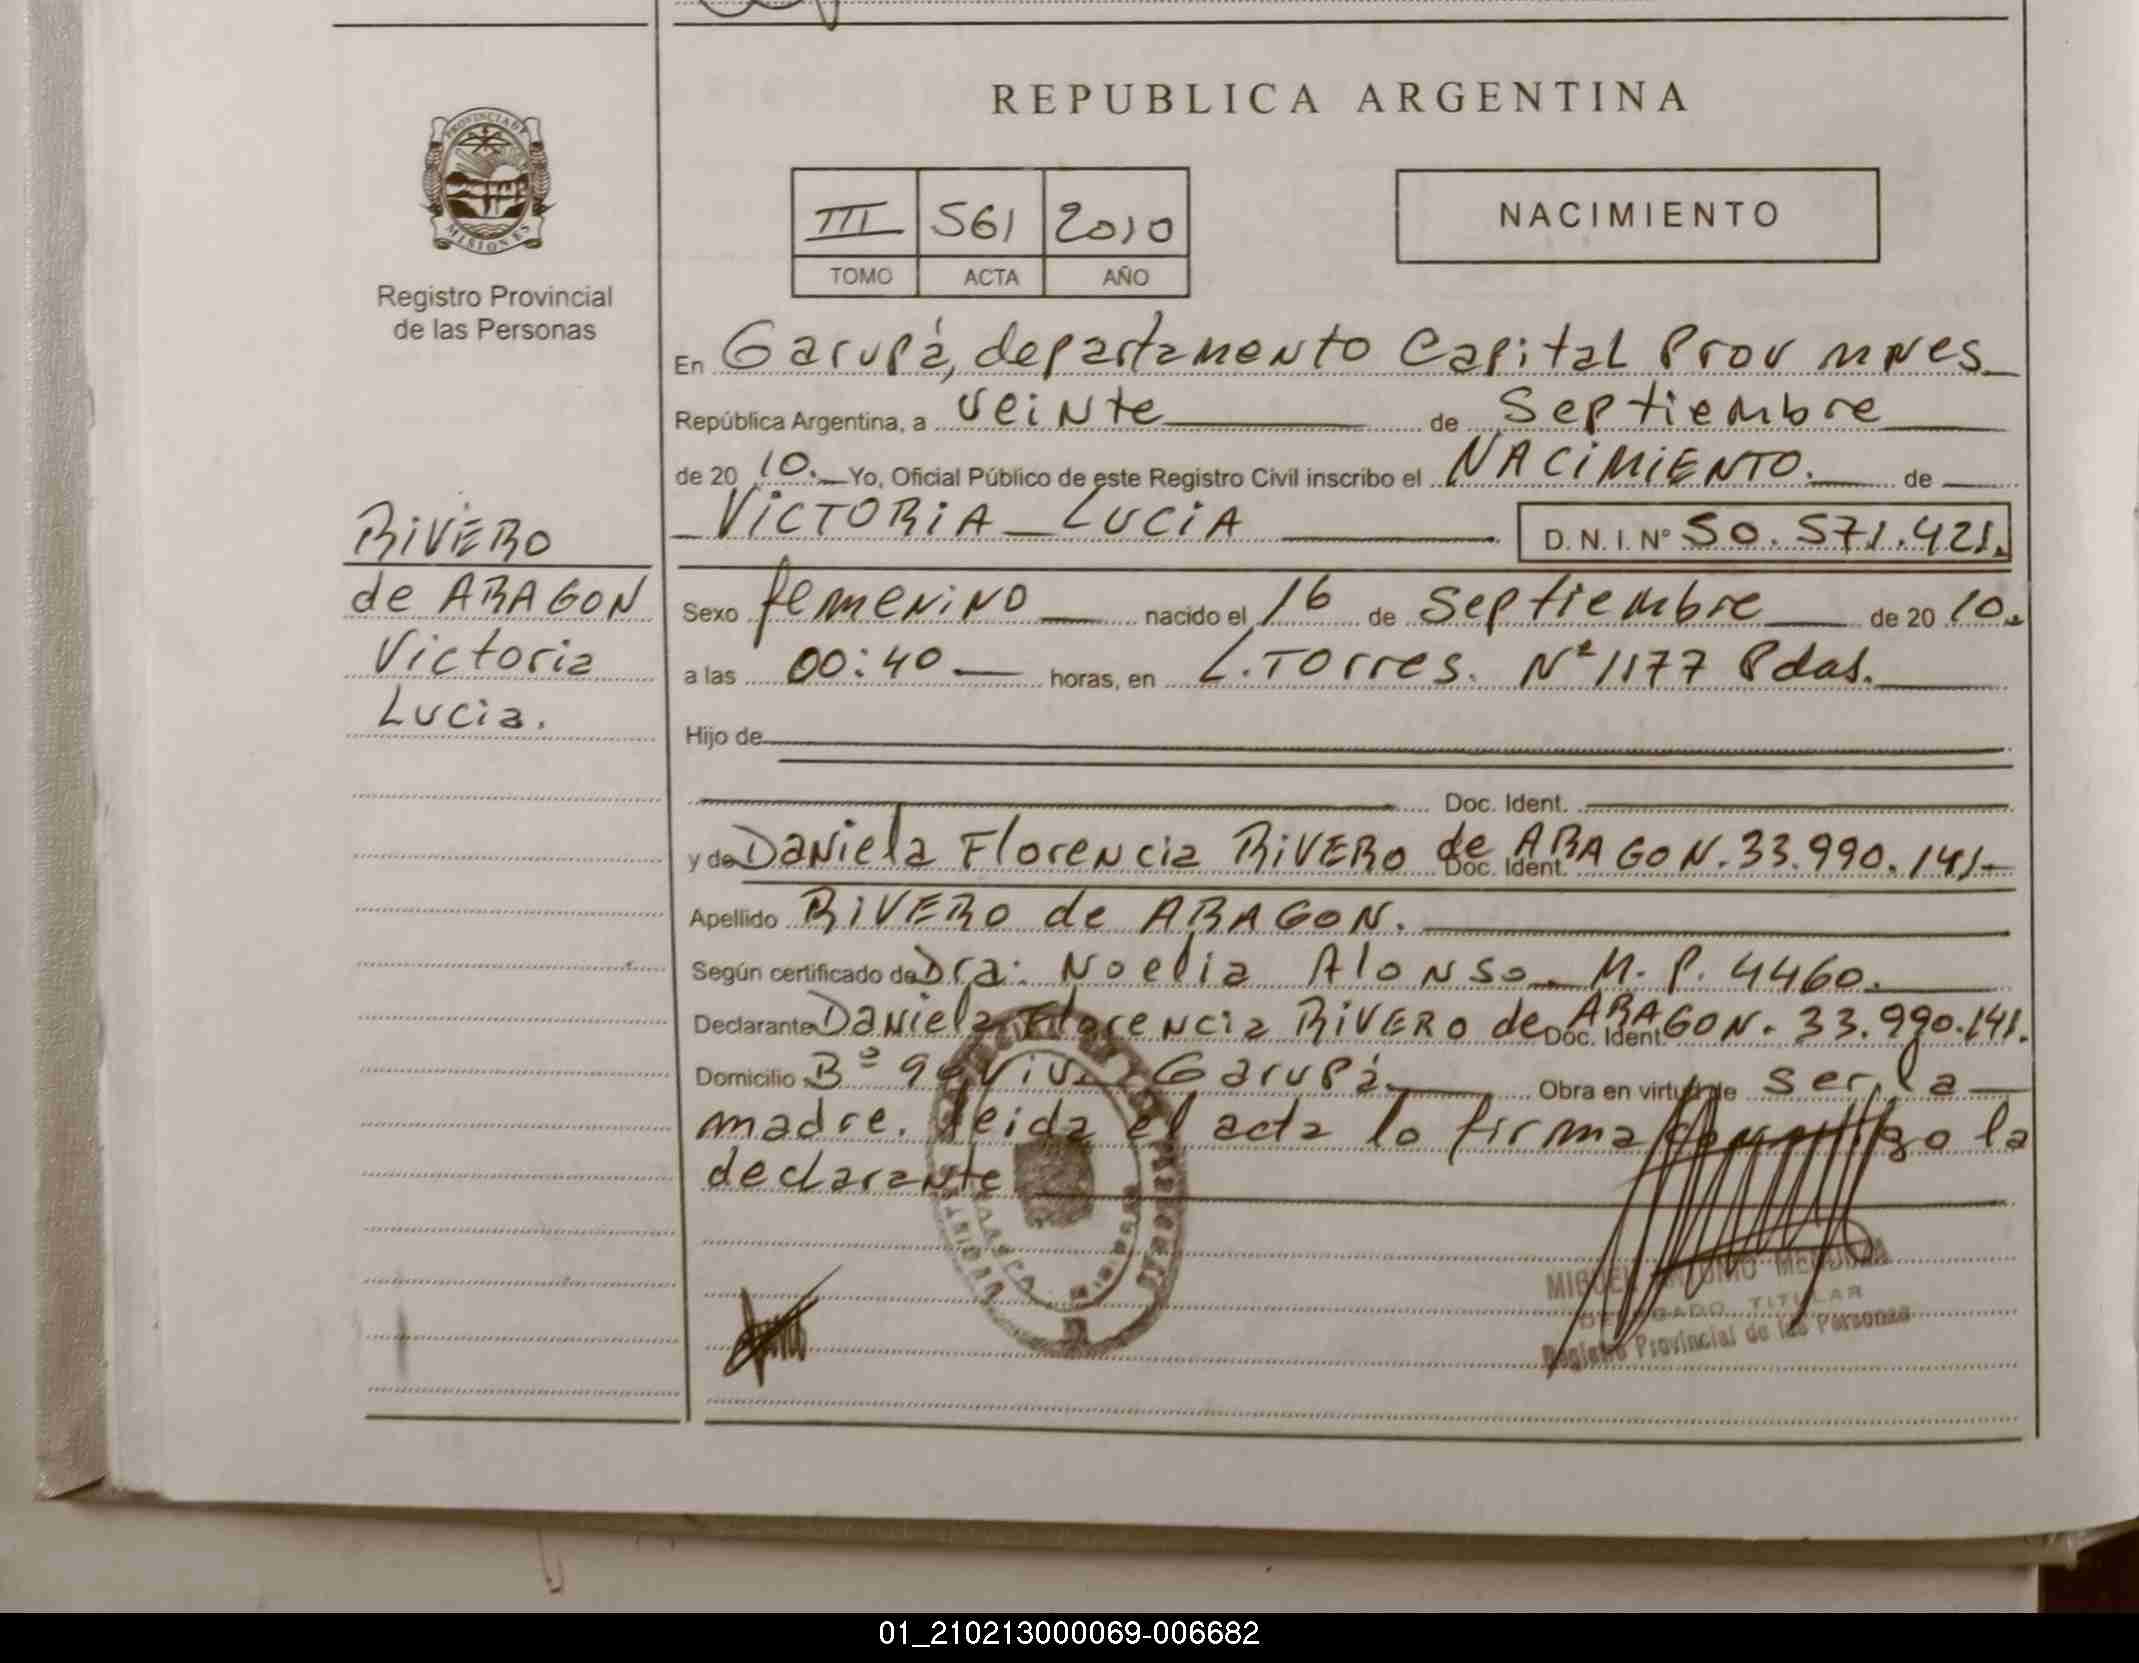 REPUBLICA ARGENTINA
PROVINCIA DE
MISIONES
Registro Provincial
de las Personas
III 561 2010
TOMO ACTA AÑO
NACIMIENTO
En Garupá, departamento Capital Prov mnes
República Argentina, a veinte de Septiembre
de 20 10. Yo, Oficial Público de este Registro Civil inscribo el NACIMIENTO. de
VICTORIA LUCIA D.N.I. Nº 50.571.421.
RIVERO
de ARAGON
Victoria
Lucia.
Sexo femenino nacido el 16 de Septiembre de 20 10.
a las 00:40 horas, en L. Torres. Nº 1177 Pdas.
Hijo de
Doc. Ident.
y de Daniela Florencia RIVERO de ARAGON. Doc. Ident. 33.990.141
Apellido RIVERO de ARAGON.
Según certificado de Dra: Noelia Alonso M.P. 4460.
Declarante Daniela Florencia RIVERO de ARAGON. Doc. Ident. 33.990.141.
Domicilio Bº Garupá Obra en virtud de ser la
madre. leida el acta lo firma la
declarante
MIGUEL ANTONIO MENDOZA
DELEGADO TITULAR
Registro Provincial de las Personas
01_210213000069-006682